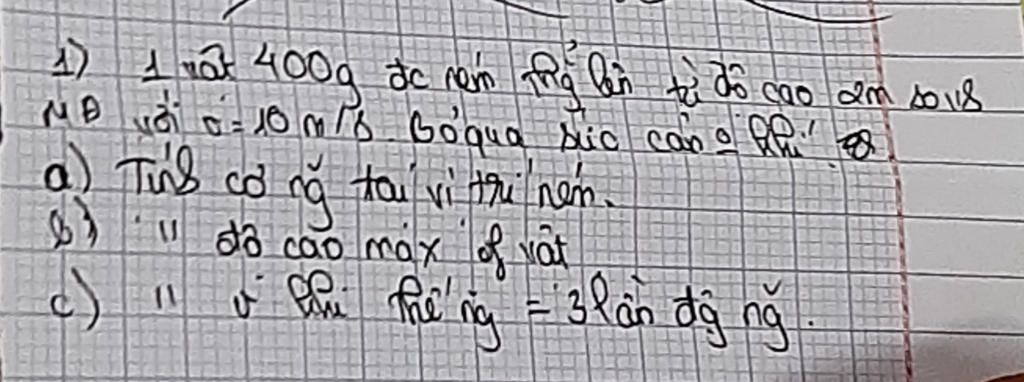 1) 1 vật 400g đc ném thẳg lên từ độ cao 2m so vs
MĐ với v = 10 m/s. Bỏ qua sức cản o khí
a) Tính cơ ng tại vị trí ném.
b) " độ cao max of vật
c) " v khi thế ng = 3 lần độg ng.